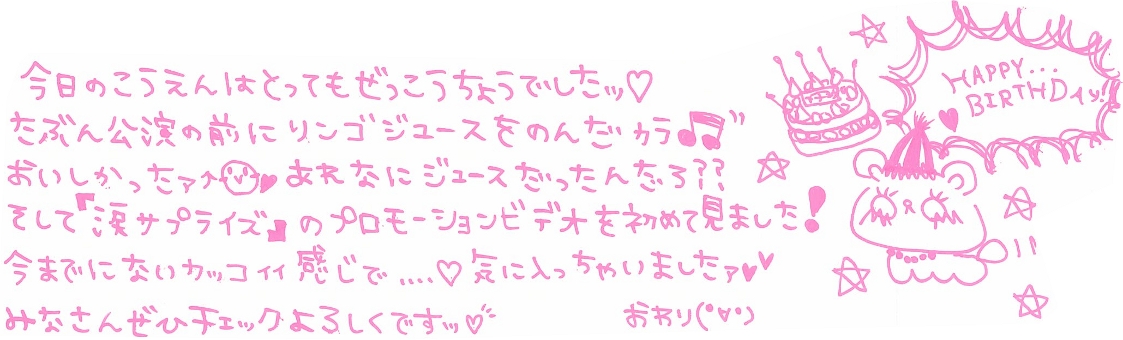 今日のこうえんはとってもぜっこうちょうでしたッ♡
たぶん公演の前にリンゴジュースをのんだカラ♫
おいしかったァ↗♥あれなにジュースだったんだろ??
そして『涙サプライズ』のプロモーションビデオを初めて見ました!
今までにないカッコイイ感じで....♡気に入っちゃいましたァ♥♥
みなさんぜひチェックよろしくですッ♡
おわり(°∀°)
HAPPY...
BIRTHDAy!